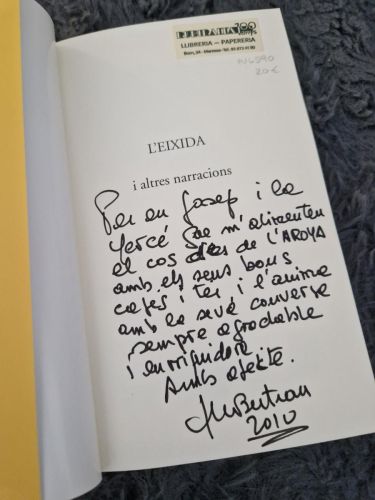 LLIBRERIA — PAPERERIA
20€
L'EIXIDA
i altres narracions
Per en Josep i la
Mercé que m'alimenten
el cos des de L'AROYA
amb els seus bons
cafès i tes i l'ànima
amb la seva conversa
sempre agradable
i enriquidora.
Amb afecte.
2010